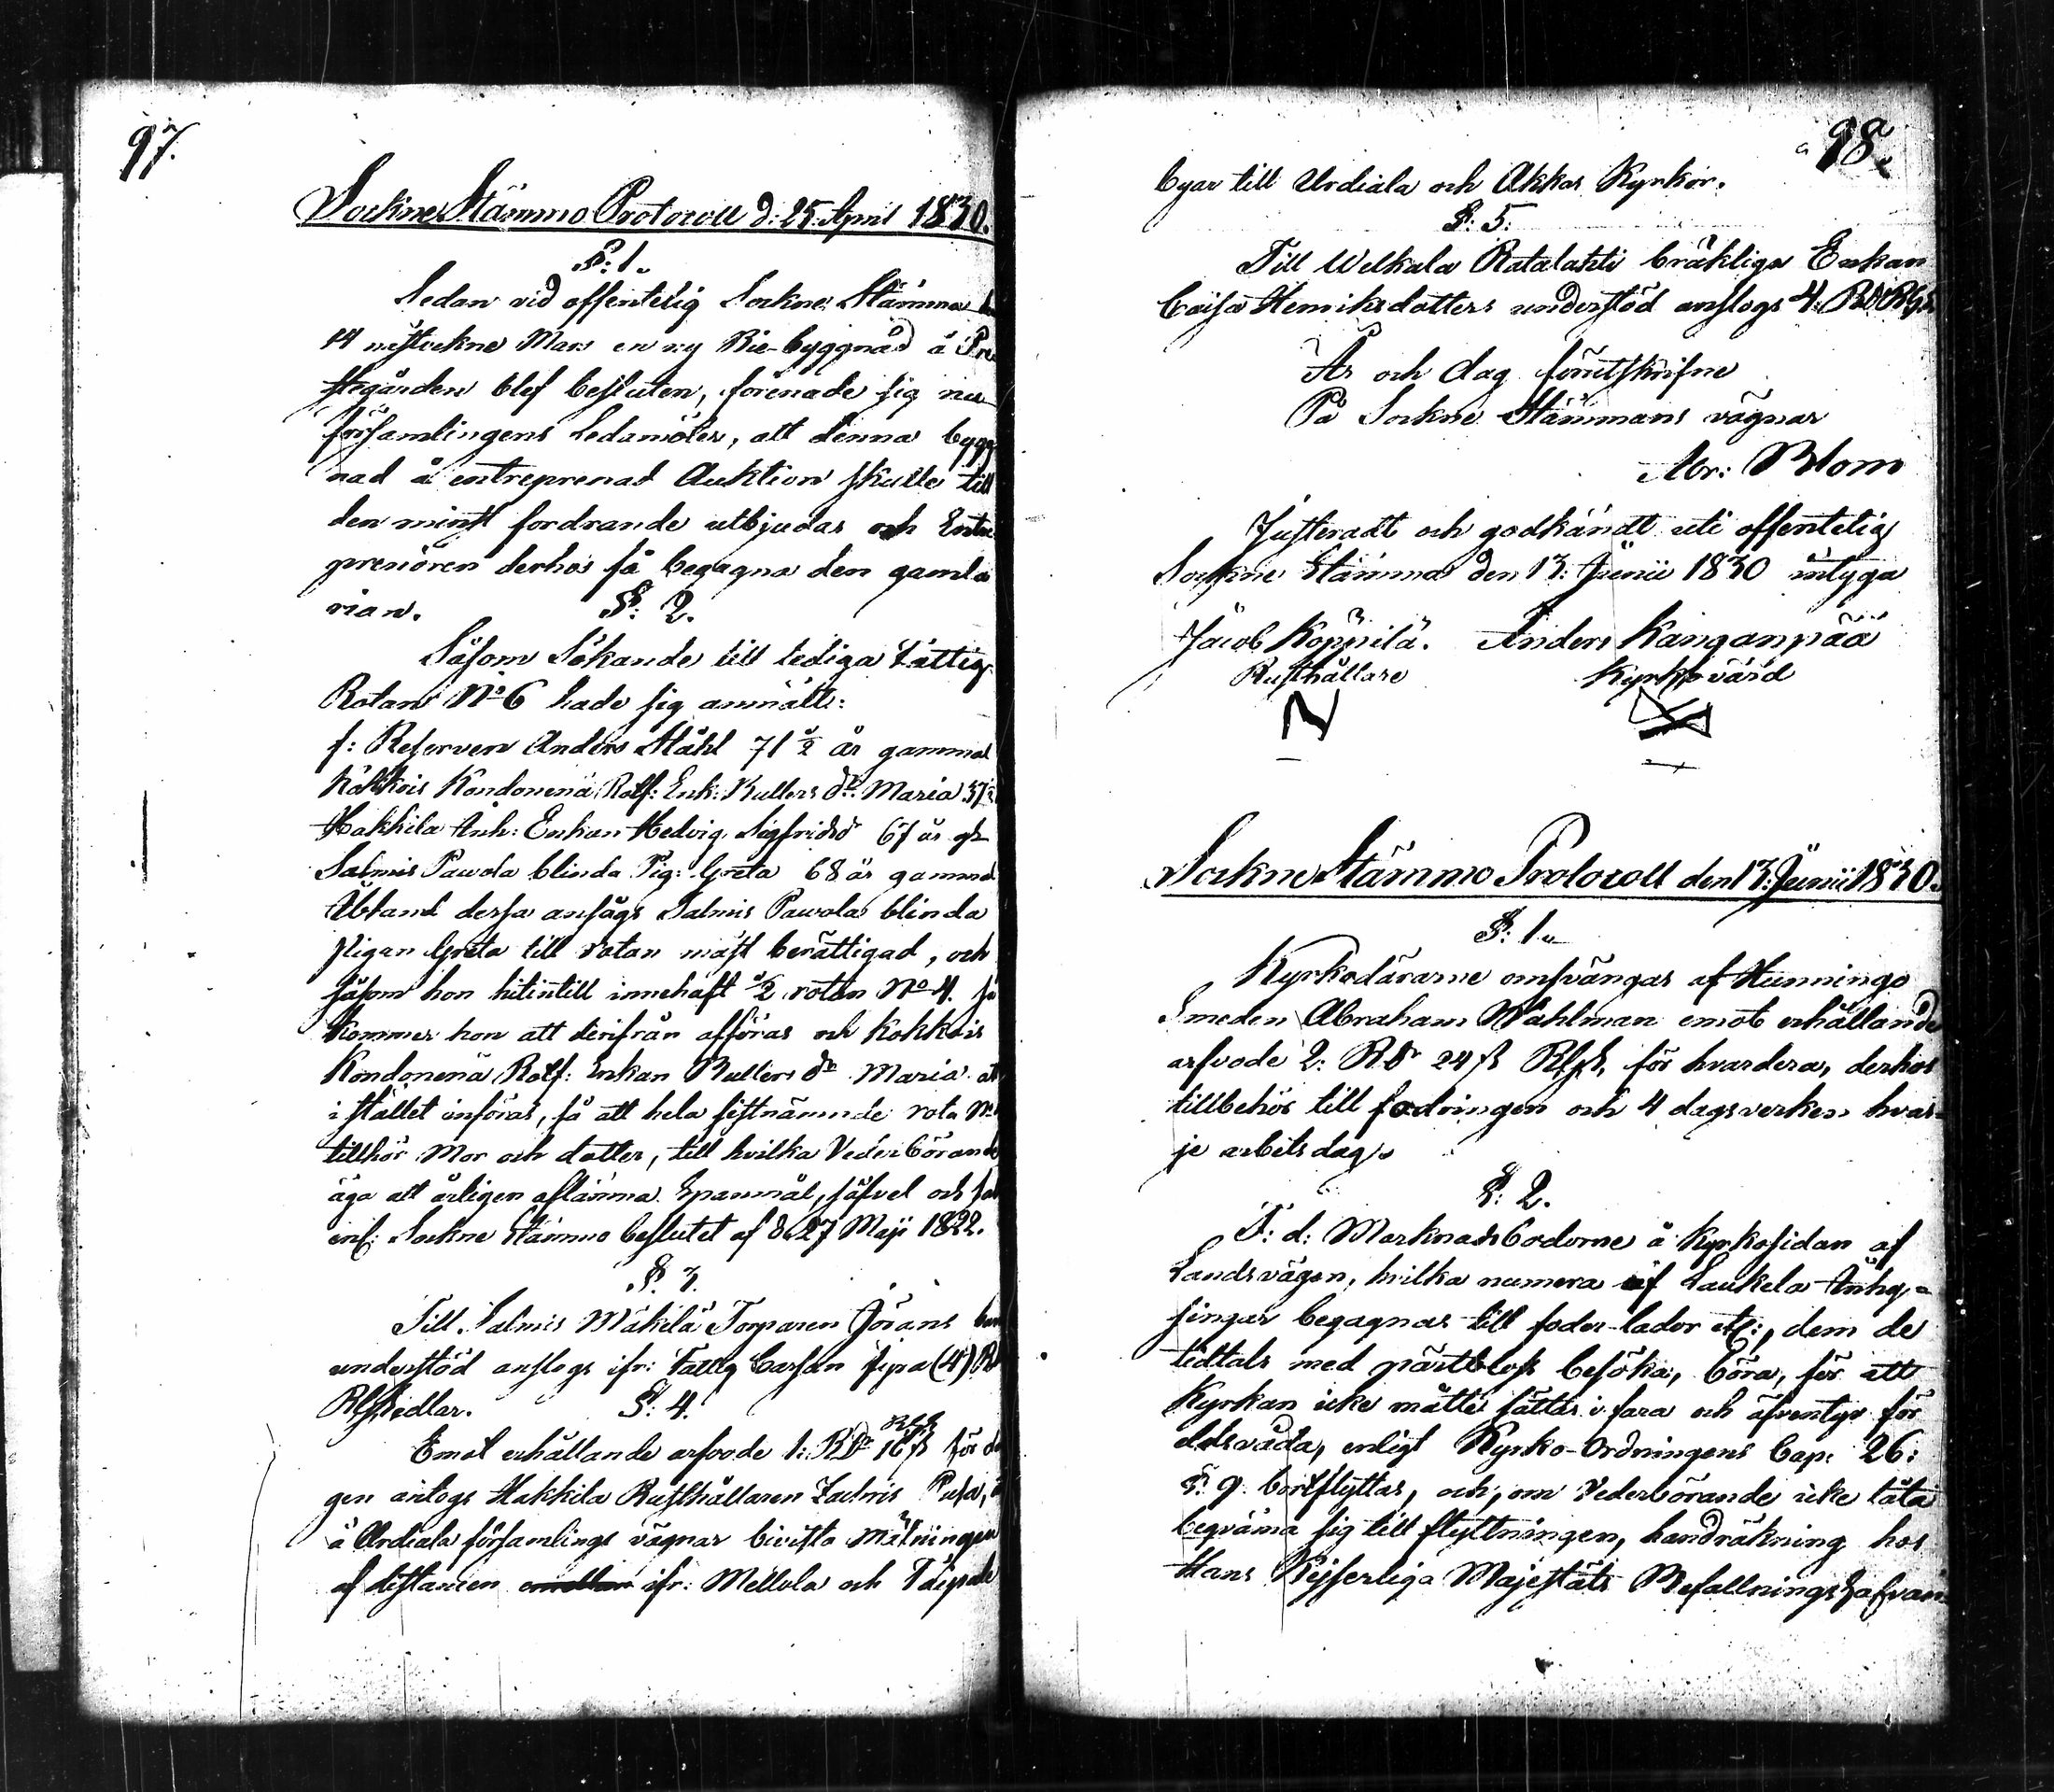 97.
Sockne Stämmo Protocoll d: 25 April 1830.
§: 1.
Sedan vid offentelig Sockne Stämma
14 nästvekne Mars en ny Rie-byggnad å Pre
stegården blef besluten, förenade sig nu
församlingens Ledamöter, att denna bygg
nad å entreprenad Auktion skulle till
den minst fordrande utbjudas och Entre
prenören derhos få begagna den gamla
rian. §: 2.
Såsom Sökande till lediga Fattig
Rotan No 6 hade sig anmält:
f: Reserven Anders Ståhl 71 1/2 år gammal
Kokkois Kondonenä Rotf: Enk: Bullers dr Maria
Hakkila Inh: Enkan Hedvig Sigfridsdr 67 år gl
Salmis Pawola blinda Pig: Greta 68 år gammal
Ibland dessa ansågs Salmis Pawolas blinda
pigan Greta till rotan mäst berättigad, och
såsom hon hitintill innehaft 1/2 rotan No 4. så
kommer hon att derifrån afföras och Kokkois
Kondonenä Rotf: Enkan Bullers dr Maria att
i stället införas, så att hela sistnämnde rota No
tillhör Mor och dotter, till hvilka Vederbörande
äga att årligen aflämna Spanmål, säfvel och
enl: Sockne Stämmo beslutet af d. 27 Maji 1822.
§. 3.
Till Salmis Mäkilä Torparen Jörans
understöd anslogs ifr: Fattig Cassan fyra (4) R
RGSedlar. §: 4.
RGS
Emot erhållande arfvode 1: RDr 16 s för da
gen antogs Hakkila Rusthållaren Zachris Pusa,
å Urdiala församlings vägnar bivista Mätningen
af distancen emellan ifr: Mellola och Taipale
98.
byar till Urdiala och Akkas Kyrkor.
§: 5.
Till Welkala Ratalahti bräkliga Enkan
Caisa Henriksdotters understöd anslogs 4: RD RGS
År och dag förutskrifne
På Sockne Stämmans vägnar
Abr: Blom
Justeradt och godkändt uti offentelig
Sockne Stämma den 13: Junii 1830 intyga
Jacob Köppilä. Anders Kanganpää
Rusthållare Kyrkovärd
Sockne Stämmo Protocoll den 13: Junii 1830.
§: 1.
Kyrkodörarne omsvängas af Hunningo
Smeden Abraham Wahlman emot erhållande
arfvode 2: RDr 24 s RGS, för hvardera, derhos
tillbehör till fodringen och 4 dagsverken hvar-
je arbetsdag.
§: 2.
F: d: Marknadsbodorne å Kyrkosidan af
Landsvägen, hvilka numera af Laukela Inhy-
singar begagnas till foder-lador etc:, dem de
tidtals med pärtbloss besöka, böra, för att
Kyrkan icke måtte sättas i fara och äfventyr för
eldsvåda, enligt Kyrko-Ordningens Cap: 26:
§. 9. bortflyttas, och, om Vederbörande icke låta
beqväma sig till flyttningen, handräkning hos
Hans Kejserliga Majestäts Befallningshafvan